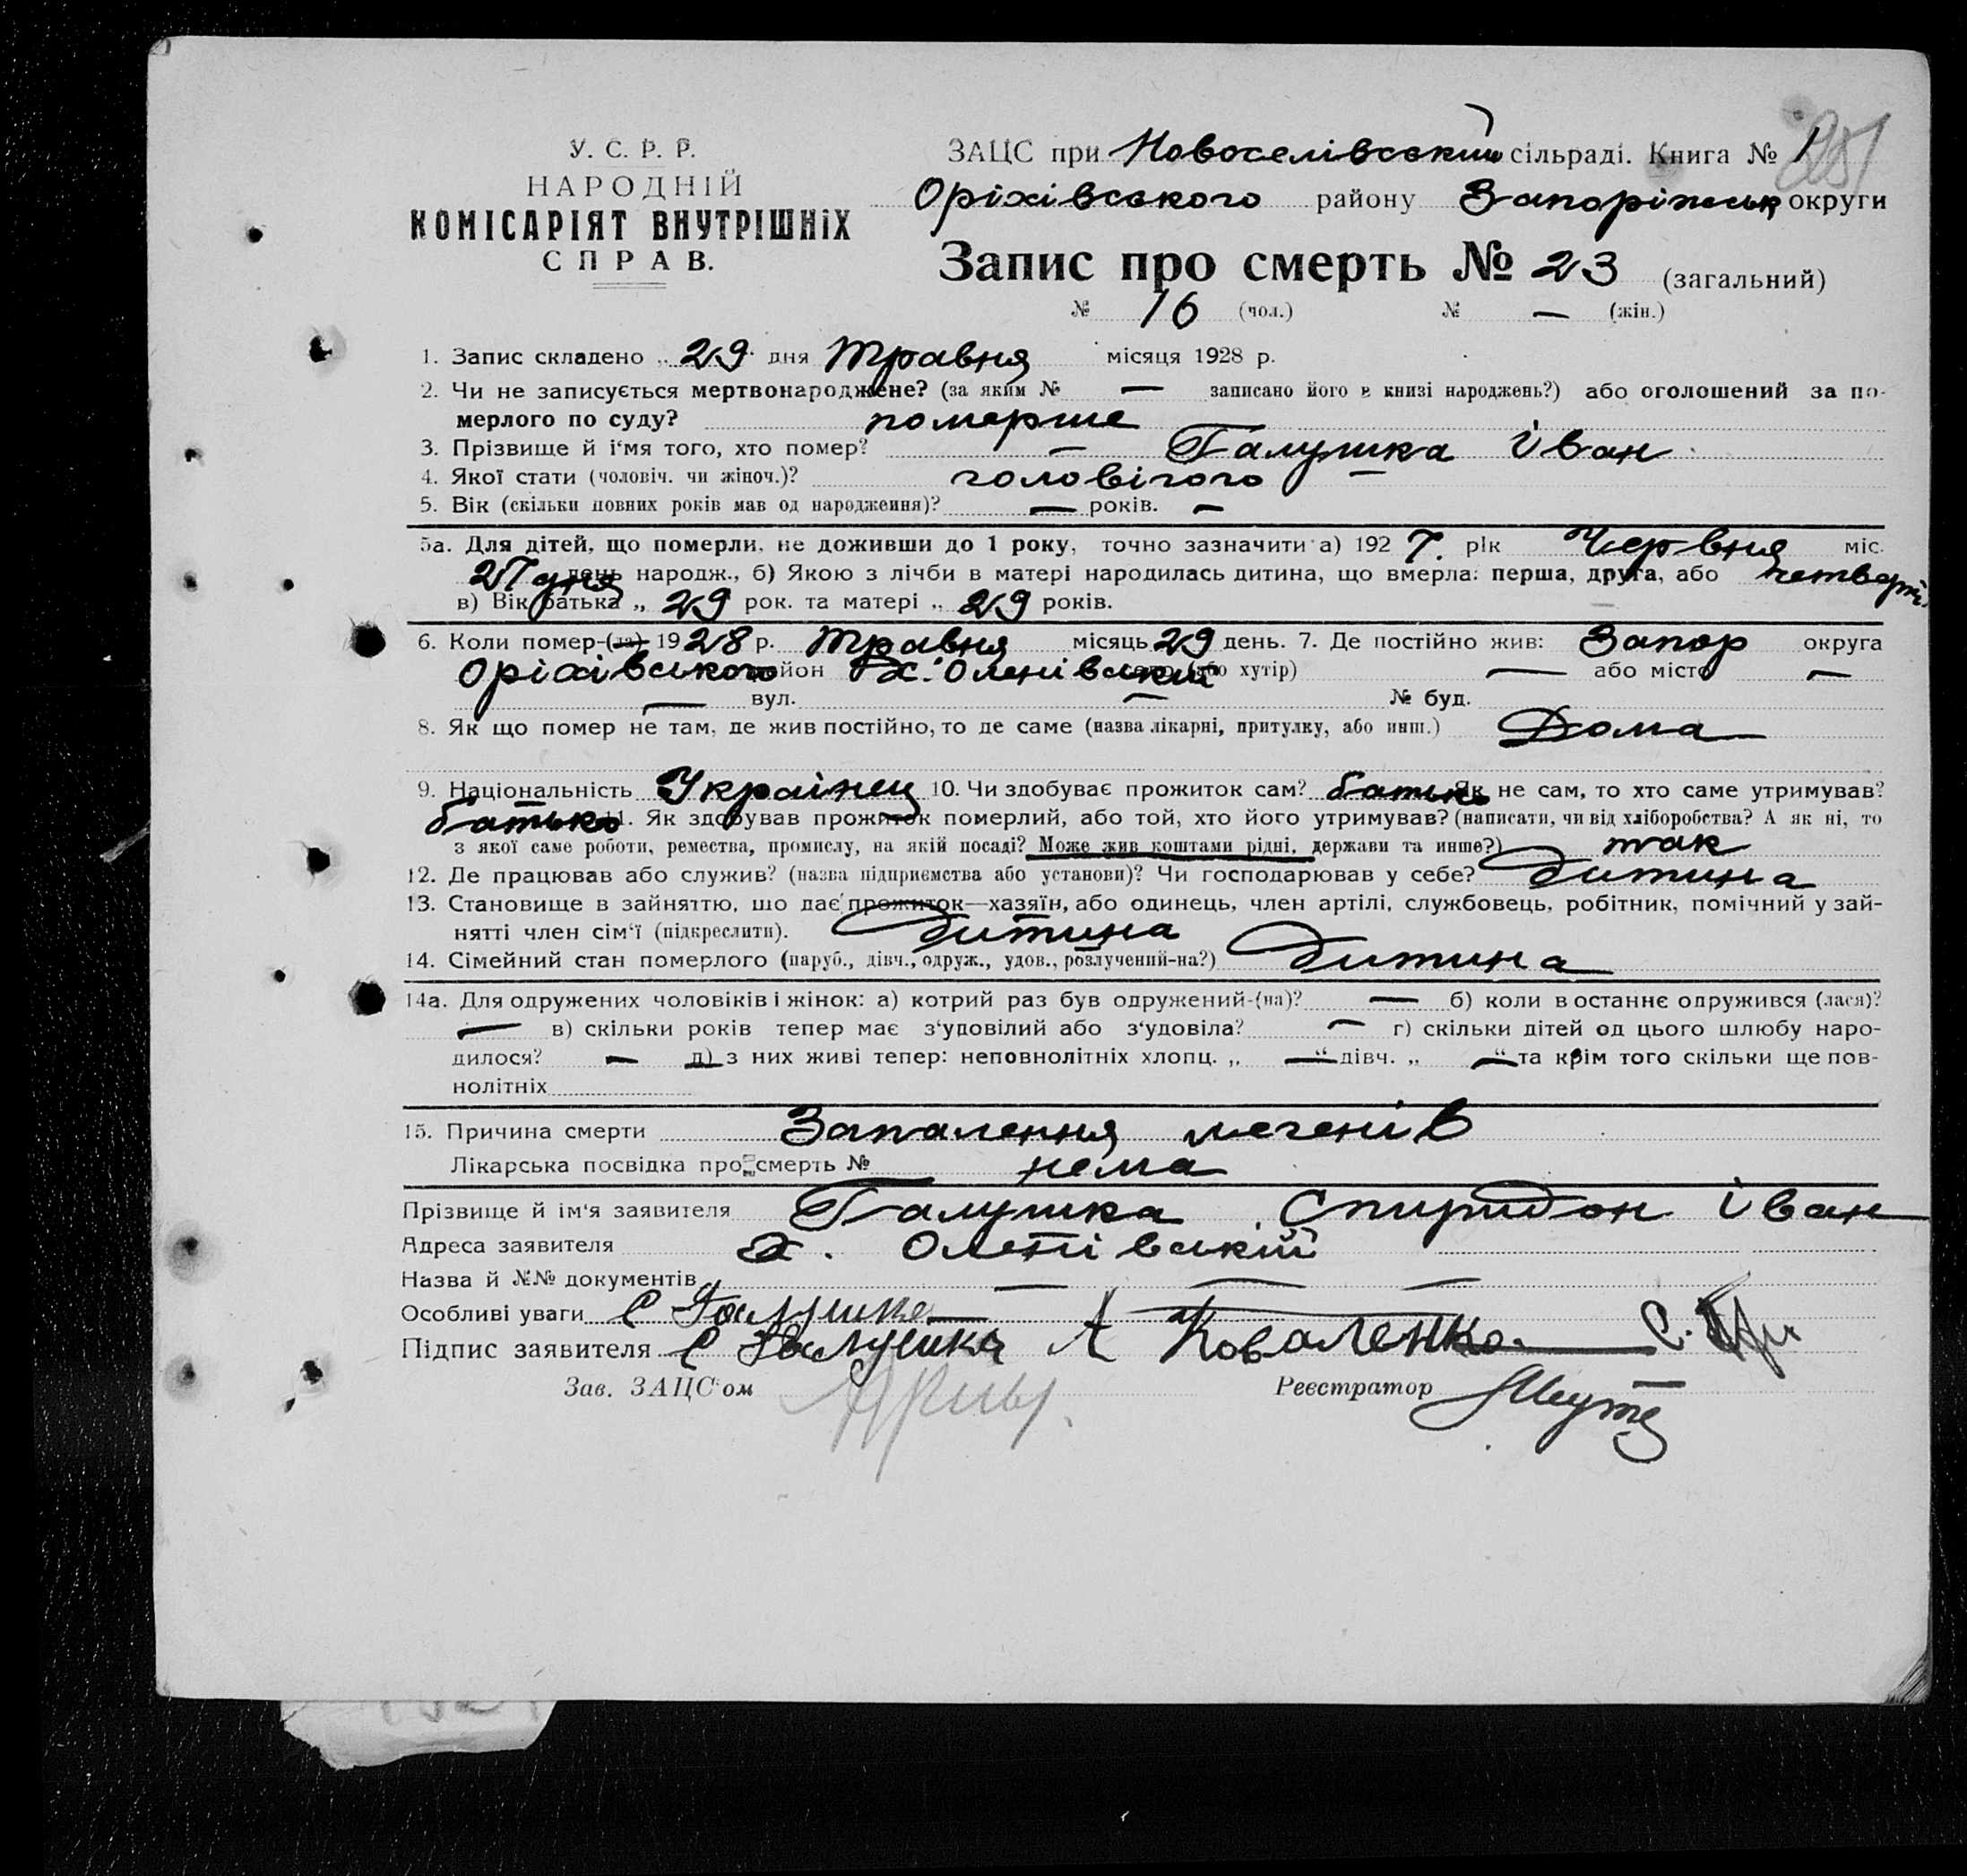 251
У. С. Р. Р.
НАРОДНІЙ
КОМІСАРІЯТ ВНУТРІШНІХ
СПРАВ.
ЗАЦС при Новоселівський сільраді. Книга № 1
Оріхівського району Запоріжськ округи
Запис про смерть № 23 (загальний)
№ 16 (чол.) № — (жін.)
1. Запис складено „ 29 " дня Травня місяця 1928 р.
2. Чи не записується мертвонароджене? (за яким № — записано його в книзі народжень?) або оголошений за по-
мерлого по суду? померше
3. Прізвище й і'мя того, хто помер? — Галушка Іван
4. Якої стати (чоловіч. чи жіноч.)? чоловічого —
5. Вік (скільки повних років мав од народження)? — років. —
5а. Для дітей, що померли, не доживши до 1 року, точно зазначити а) 192 7. рік Червня міс.
27 дня день народж., б) Якою з лічби в матері народилась дитина, що вмерла: перша, друга, або
в) Вік батька „ 29 рок. та матері „ 29 років.
6. Коли помер-(ла) 1928 р. Травня місяць 29 день. 7. Де постійно жив: Запор округа
Оріхівського район х. Оленівський село (або хутір) — або місто —
— вул. — № буд.
8. Як що помер не там, де жив постійно, то де саме (назва лікарні, притулку, або инш.) Дома
9. Національність Українец 10. Чи здобуває прожиток сам? батько Як не сам, то хто саме утримував?
батько 11. Як здобував прожиток померлий, або той, хто його утримував? (написати, чи від хліборобства? А як ні, то
з якої саме роботи, ремества, промислу, на якій посаді? Може жив коштами рідні, держави та инше?) так
12. Де працював або служив? (назва підприємства або установи)? Чи господарював у себе? Дитина
13. Становище в зайняттю, що дає прожиток—хазяїн, або одинець, член артілі, службовець, робітник, помічний у зай-
нятті член сім'ї (підкреслити). Дитина
14. Сімейний стан померлого (паруб., дівч., одруж., удов., розлучений-на?) Дитина
14а. Для одружених чоловіків і жінок: а) котрий раз був одружений-(на)? — б) коли в останнє одружився (лася)?
— в) скільки років тепер має з'удовілий або з'удовіла? — г) скільки дітей од цього шлюбу наро-
дилося? — д) з них живі тепер: неповнолітніх хлопц. „ —" дівч. „ —" та крім того скільки ще пов-
нолітніх
15. Причина смерти Запалення легенів
Лікарська посвідка про смерть № нема
Прізвище й ім'я заявителя Галушка Спиридон Іван
Адреса заявителя х. Оленівський
Назва й №№ документів — — —
Особливі уваги С Галушка
Підпис заявителя С Галушка А Коваленко
Зав. ЗАЦС'ом
Реєстратор